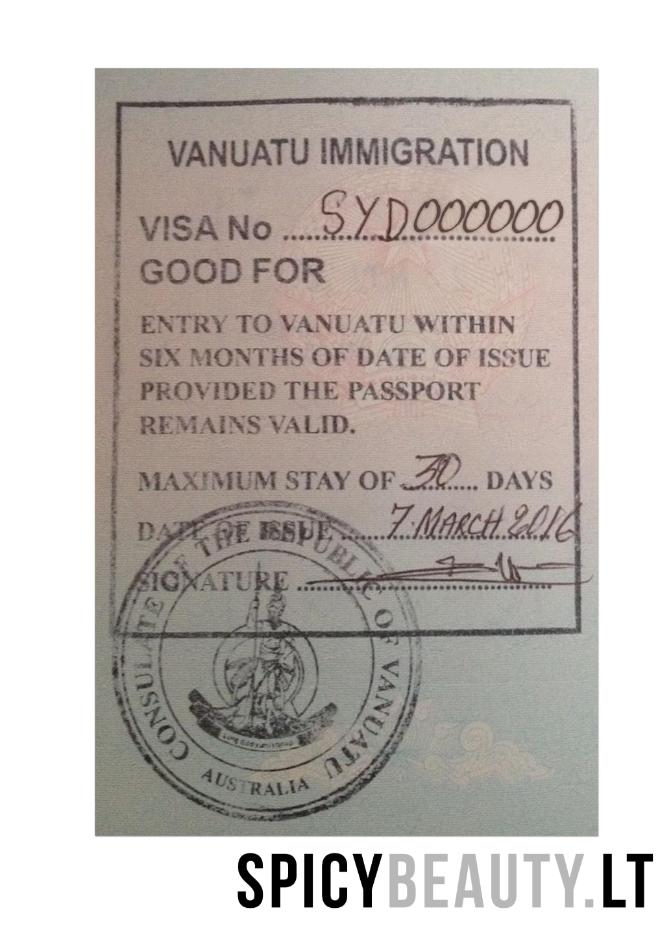 VANUATU IMMIGRATION
VISA No ..... SYD000000
GOOD FOR
ENTRY TO VANUATU WITHIN
SIX MONTHS OF DATE OF ISSUE
PROVIDED THE PASSPORT
REMAINS VALID.
MAXIMUM STAY OF 30 DAYS
DATE OF ISSUE ..... 7 MARCH 2016
SIGNATURE .....
CONSULATE OF THE REPUBLIC OF VANUATU
AUSTRALIA
SPICYBEAUTY.LT